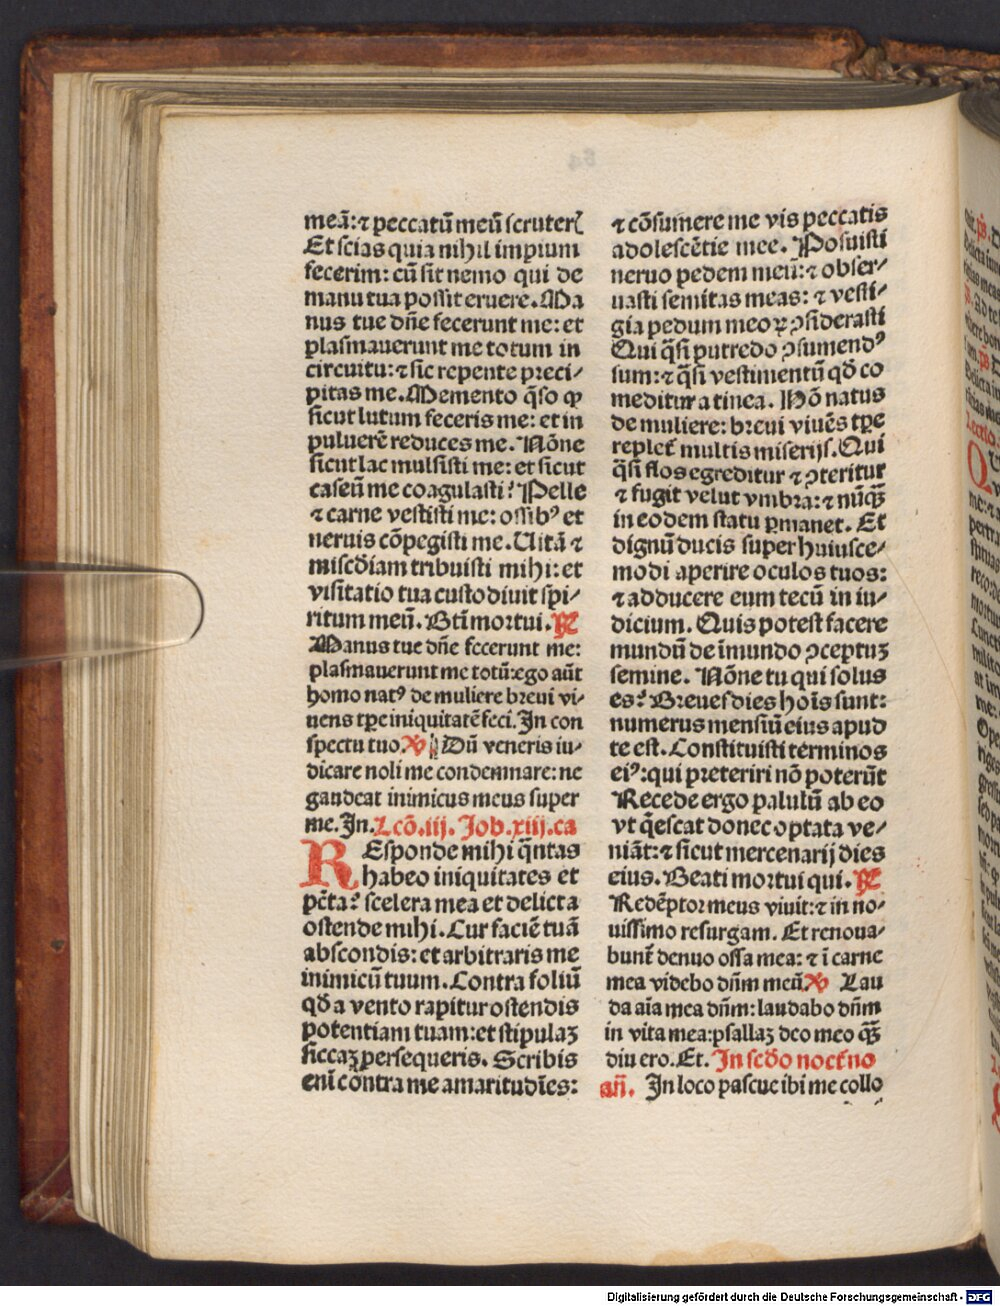 meā: ⁊ peccatū meū scruter᷑
Et scias quia nihil impium
fecerim: cū sit nemo qui de
manu tua possit eruere. Ma
nus tue dn̄e fecerunt me: et
plasmauerunt me totum in
circuitu: ⁊ sic repente preci⸗
pitas me. Memento q̄so ꝙ
sicut lutum feceris me: et in
puluerē reduces me. Nōne
sicut lac mulsisti me: et sicut
caseū me coagulasti? Pelle
⁊ carne vestisti me: ossibꝰ et
neruis cōpegisti me. Uitā ⁊
misc̄diam tribuisti mihi: et
visitatio tua custodiuit spi⸗
ritum meū. Bt̄i mortui. ℟
Manus tue dn̄e fecerunt me:
plasmauerunt me totū: ego aūt
homo natꝰ de muliere breui vi⸗
uens tp̄e iniquitatē feci. In con
spectu tuo. ℣ Dū veneris iu⸗
dicare noli me condemnare: ne
gaudeat inimicus meus super
me. In. Lcō. iij. Job. xiij. ca
REsponde mihi q̄ntas
habeo iniquitates et
pctā? scelera mea et delicta
ostende mihi. Cur faciē tuā
abscondis: et arbitraris me
inimicū tuum. Contra foliū
qd̄ a vento rapitur ostendis
potentiam tuam: et stipulaꝫ
siccaꝫ persequeris. Scribis
eni̅ contra me amaritudīes:
⁊ cōsumere me vis peccatis
adolescētie mee. Posuisti
neruo pedem meū: ⁊ obser⸗
uasti semitas meas: ⁊ vesti⸗
gia pedum meoꝝ ꝯsiderasti
Qui q̄si putredo ꝯsumendꝰ
sum: ⁊ q̄si vestimentū qd̄ co
meditur a tinea. Hō natus
de muliere: breui viuēs tp̄e
replet᷑ multis miserijs. Qui
q̄si flos egreditur ⁊ ꝯteritur
⁊ fugit velut vmbra: ⁊ nūq̄ꝫ
in eodem statu ꝑmanet. Et
dignū ducis super huiusce⸗
modi aperire oculos tuos:
⁊ adducere eum tecū in iu⸗
dicium. Quis potest facere
mundū de īmundo ꝯceptuꝫ
semine. Nōne tu qui solus
es? Breues dies hoīs sunt:
numerus mensiū eius apud
te est. Constituisti terminos
eiꝰ: qui preteriri nō poterūt
Recede ergo palulū ab eo
vt q̄escat donec optata ve⸗
niāt: ⁊ sicut mercenarij dies
eius. Beati mortui qui. ℟
Redēptor meus viuit: ⁊ in no⸗
uissimo resurgam. Et renoua⸗
bunt᷑ denuo ossa mea: ⁊ ī carne
mea videbo dn̄m meū. ℣ Lau
da aīa mea dn̄m: laudabo dn̄m
in vita mea: psallaꝫ deo meo q̄ꝫ
diu ero. Et. In scd̄o noct᷑no
an̄. In loco pascue ibi me collo
Digitalisierung gefördert durch die Deutsche Forschungsgemeinschaft - DFG